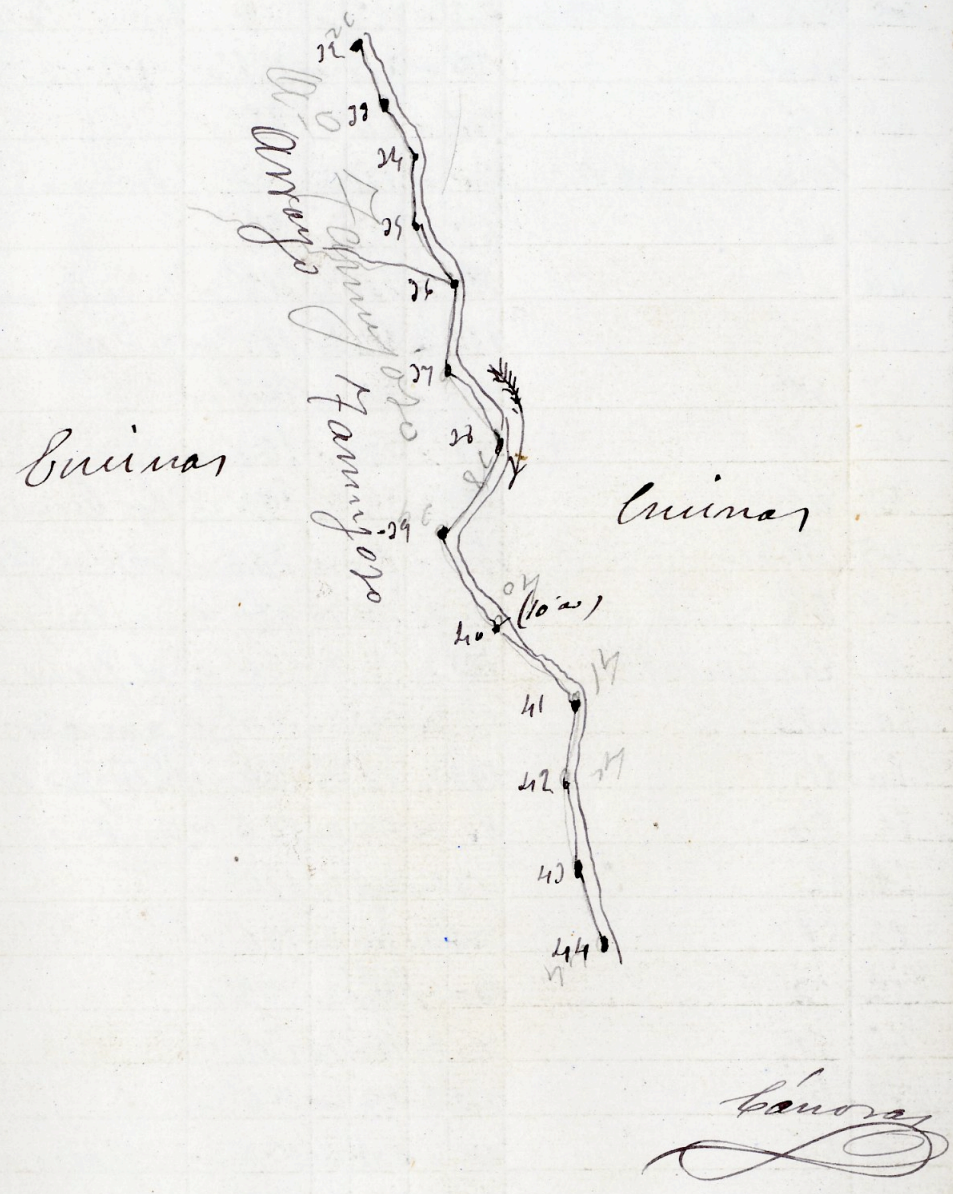 32
33
34
35
36
37
38
39
40
41
42
43
44
Arroyo Tamujoso
Encinas
Encinas
Cánovas